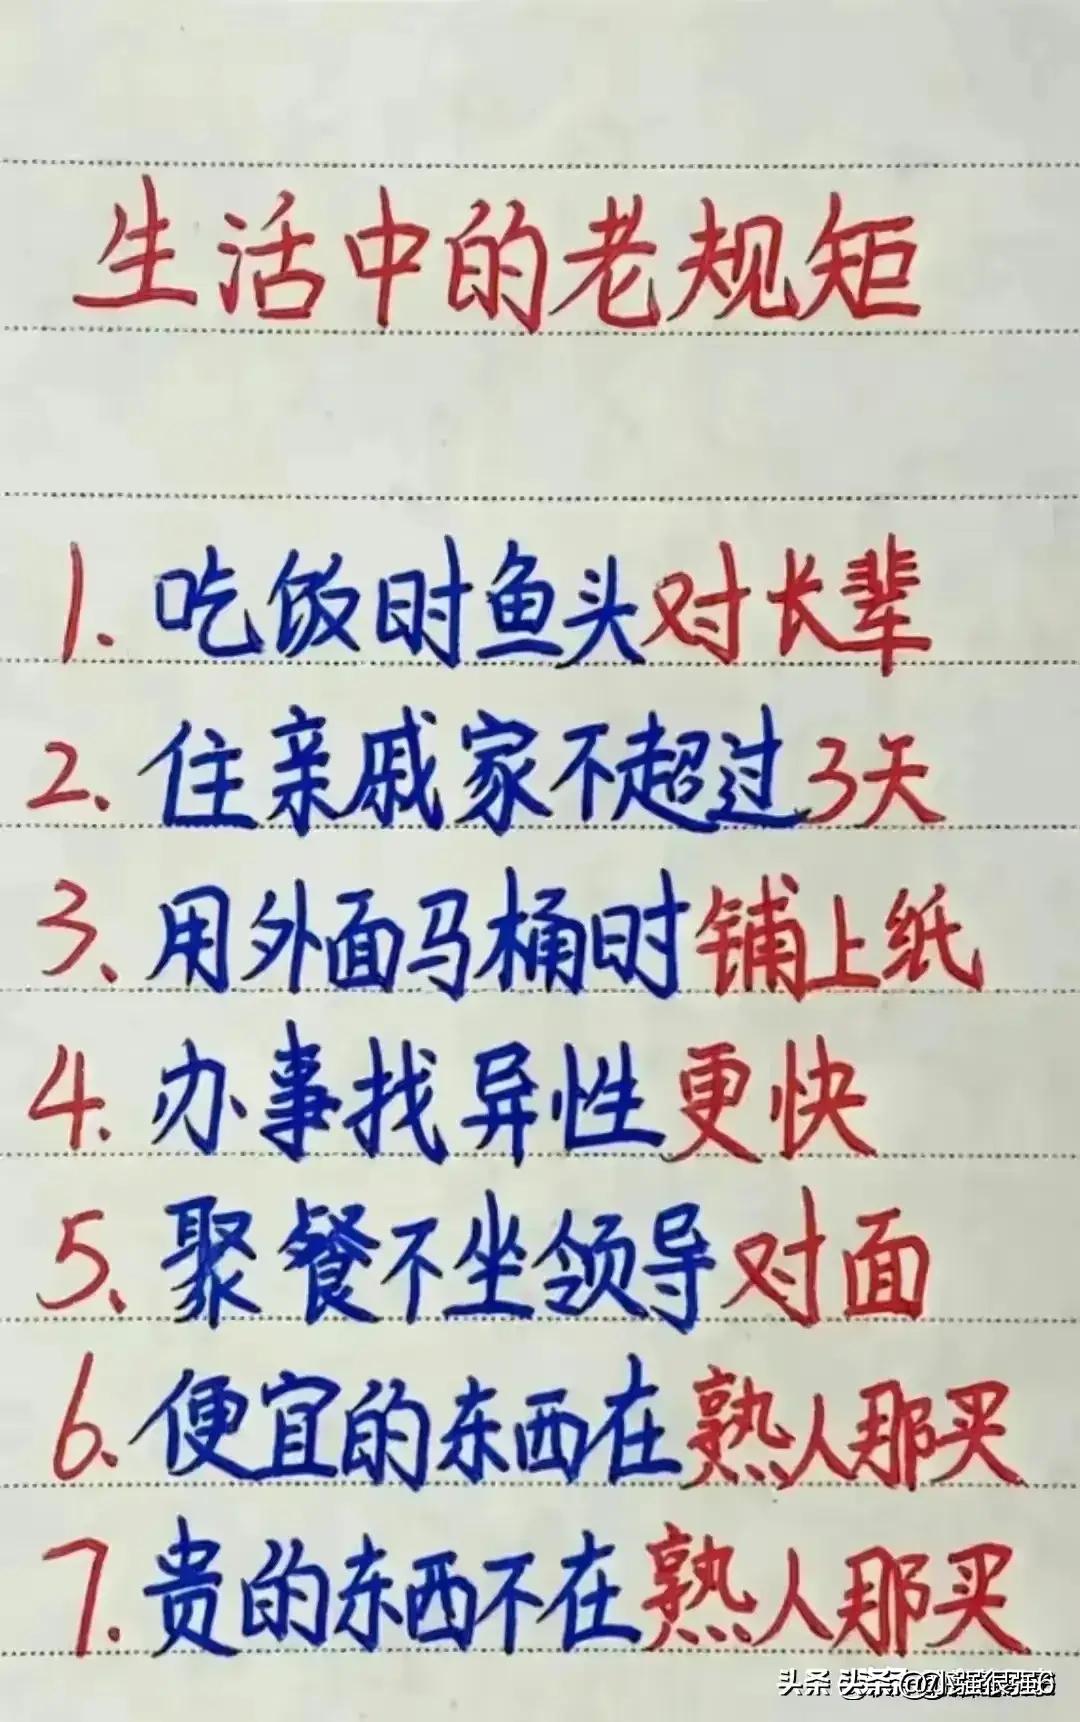 生活中的老规矩
1. 吃饭时鱼头对长辈
2. 住亲戚家不超过3天
3. 用外面马桶时铺上纸
4. 办事找异性更快
5. 聚餐不坐领导对面
6. 便宜的东西在熟人那买
7. 贵的东西不在熟人那买
头条 头条 @小强很强6